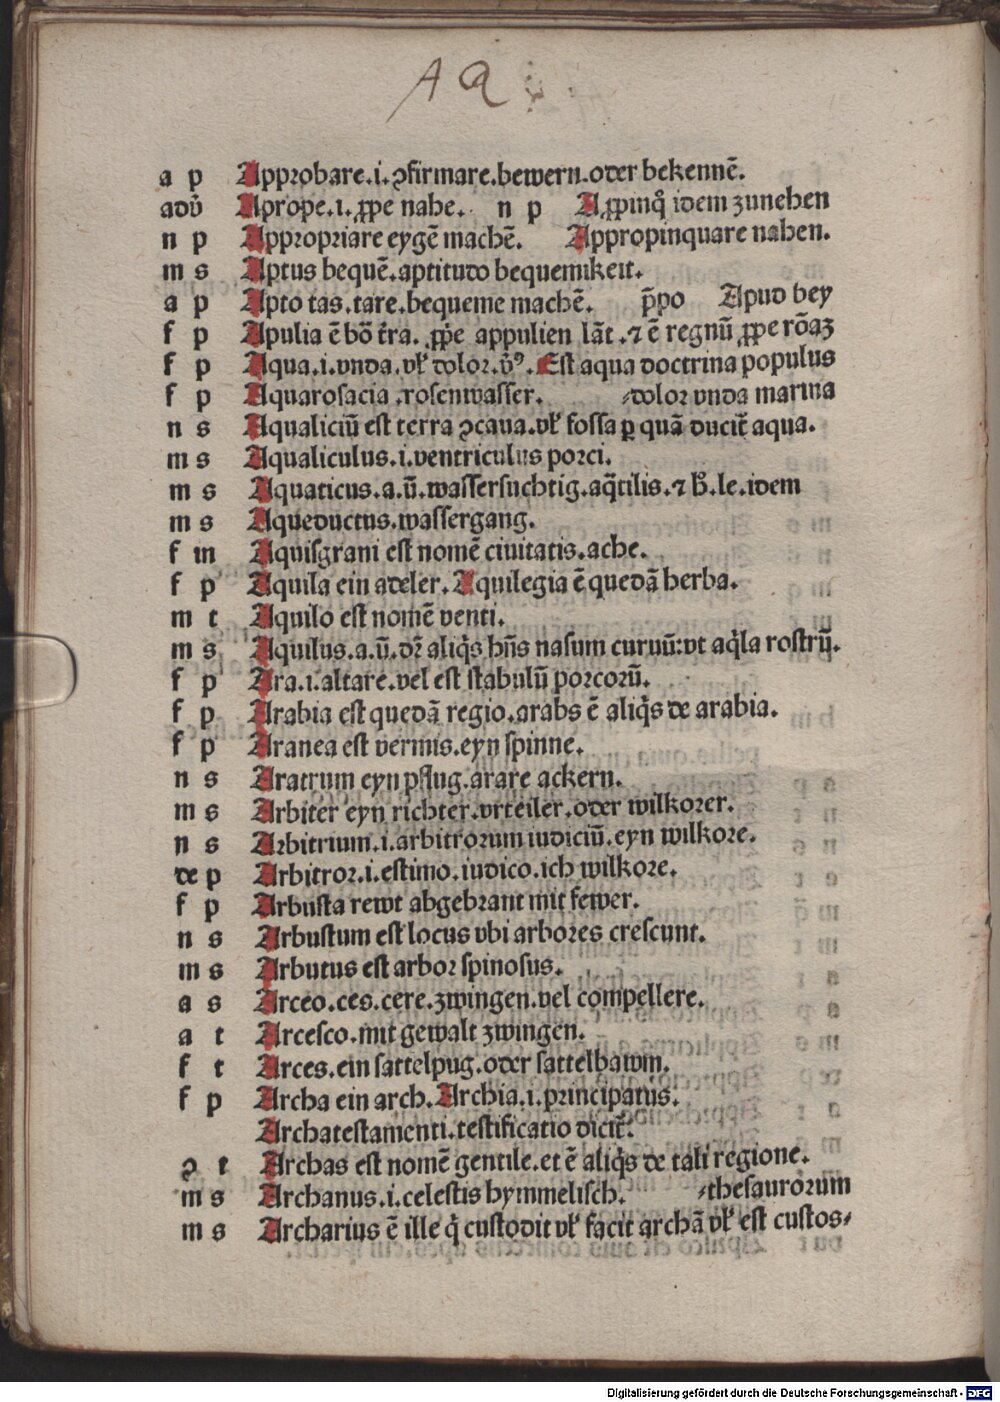 A a
a p Approbare.i.ꝯfirmare.bewern.oder bekennē.
adv̄ Aprope.i.ꝓpe nahe. n p Aꝓpinq̊ idem zunehen
n p Appropriare eygē machē. Appropinquare nahen.
m s Aptus bequē.aptitudo bequemikeit.
a p Apto tas.tare.bequeme machē. p̄po Apud bey
f p Apulia ē bō t̄ra. ꝓpe appulien lāt .⁊ ē regnū ꝓpe rōaꝫ
f p Aqua.i.vnda.vl̕ dolor.v̄ꝰ. Est aqua doctrina populus
f p Aquarosacia .rosenwasser. ⸗dolor vnda marina
n s Aqualiciū est terra ꝯcaua.vl̕ fossa ꝑ quā ducit̄ aqua.
m s Aqualiculus.i.ventriculus porci.
m s Aquaticus.a.ū.wassersuchtig.aq̄tilis.⁊ h̄.le.idem
m s Aqueductus.wassergang.
f m Aquisgrani est nomē ciuitatis.ache.
f p Aquila ein adeler. Aquilegia ē quedā herba.
m t Aquilo est nomē venti.
m s Aquilus.a.ū.dr̄ aliq̇s hn̄s nasum curuū:vt aq̇la rostrū.
f p Ara.i.altare.vel est stabulū porcorū.
f p Arabia est quedā regio.arabs ē aliq̇s de arabia.
f p Aranea est vermis.eyn spinne.
n s Aratrum eyn pflug.arare ackern.
m s Arbiter eyn richter.vrteiler.oder wilkorer.
n s Arbitrium.i.arbitrorum iudiciū.eyn wilkore.
de p Arbitror.i.estimo.iudico.ich wilkore.
f p Arbusta rewt abgebrant mit fewer.
n s Arbustum est locus vbi arbores crescunt.
m s Arbutus est arbor spinosus.
a s Arceo.ces.cere.zwingen.vel compellere.
a t Arcesco.mit gewalt zwingen.
f t Arces.ein sattelpug.oder sattelbawm.
f p Archa ein arch. Archia.i.principatus.
Archatestamenti.testificatio dicit̄.
ꝯ t Archas est nomē gentile.et ē aliq̇s de tali regione.
m s Archanus.i.celestis hymmelisch. ⸗thesaurorum
m s Archarius ē ille q̇ custodit vl̕ facit archā vl̕ est custos⸗
Digitalisierung gefördert durch die Deutsche Forschungsgemeinschaft - DFG